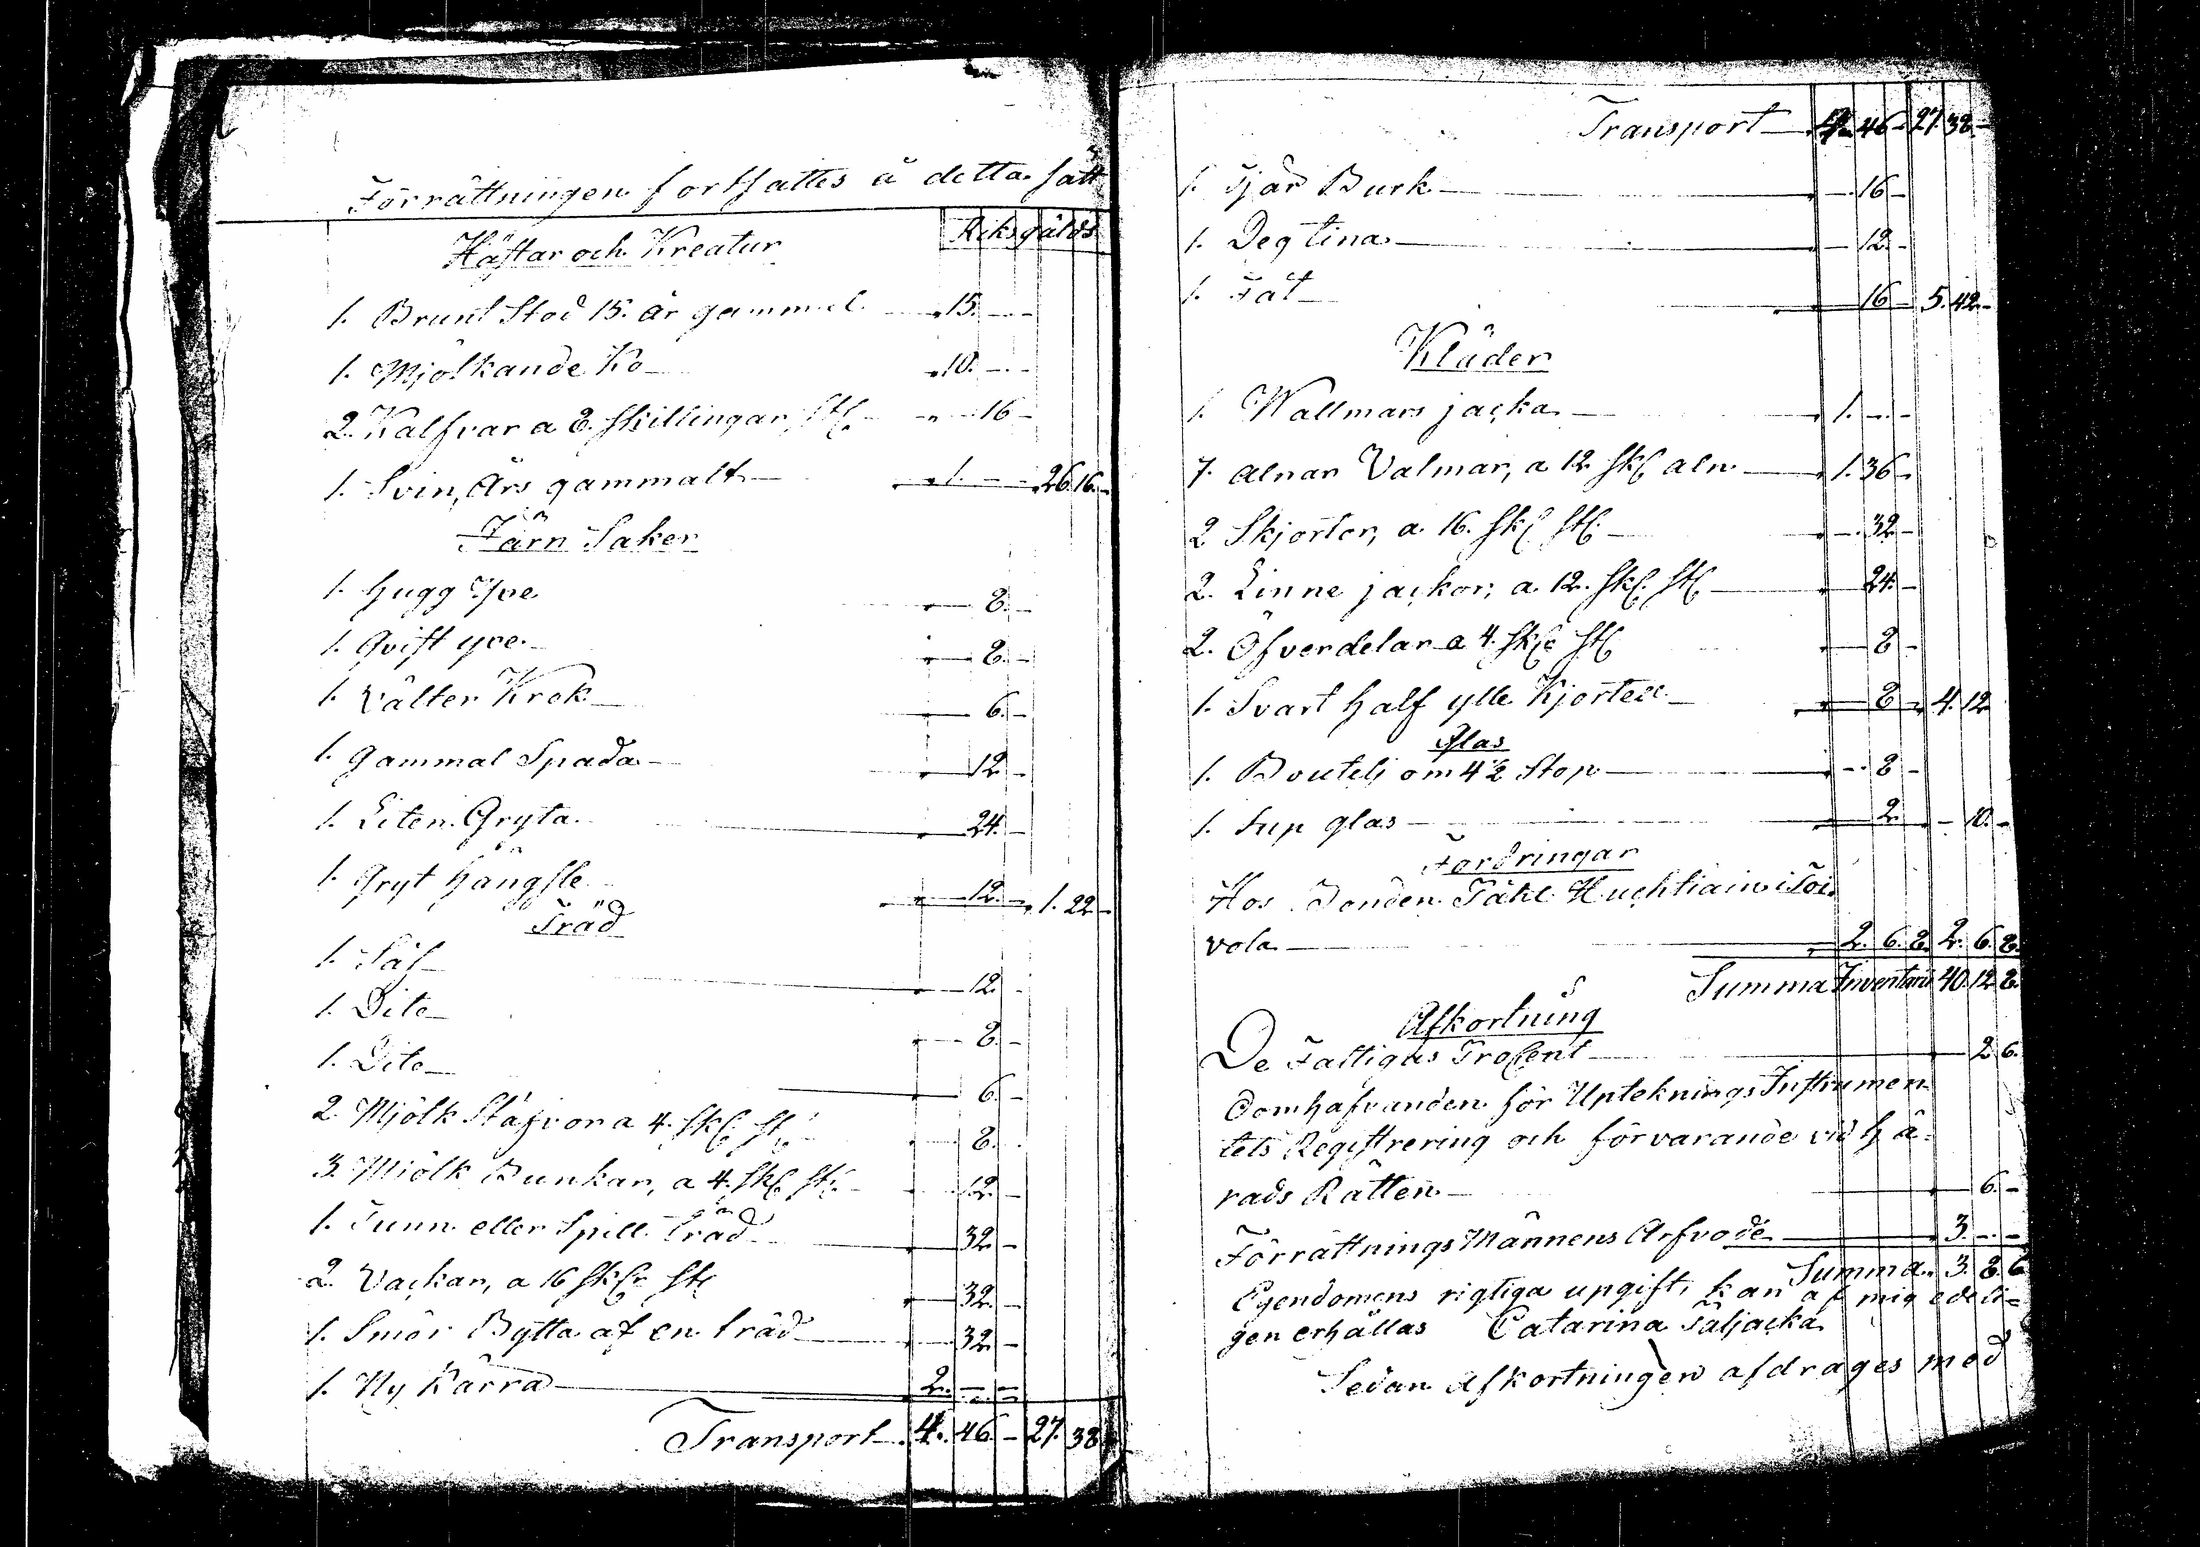 Förrättningen fortsattes å detta sätt
Riksgälds
Hästar och Kreatur
1. Brunt Stod 15. år gammal — 15. — —
1. Mjölkande Ko — 10. — —
2. Kalfvar a 8. Skillingar St. — 16 —
1. Svin, Års gammalt — 1. — — 26. 16. —
Järn Saker
1. Hugg Yxe — 8. —
1. Qvist yxe — 8. —
1. Välter Krok — 6. —
1. gammal Spada — 12 —
1. Liten Gryta — 24. —
1. Gryt hängsle — 12. — 1. 22 —
Träd
1. Såf — 12. —
1. Dito — 8. —
1. Dito — 6. —
2. Mjölk Stäfvor a 4. Sk. St. — 8. —
3. Mjölk Bunkar, a 4. Sk. St. — 12. —
1. Tunn eller Spill träd — 32 —
2. Vackar, a 16 Sk. St. — 32. —
1. Smör Bytta af en träd — 32. —
1. Ny Kärra — 2. — —
Transport 4. 46. — 27. 38
Transport — 46 — 27. 38. —
1. Tjär Burk — 16 —
1. Degtina — 12. —
1. Fat — 16 — 5. 42. —
Kläder
1. Wallmars jacka — 1. — —
7. alnar Valmar, a 12 Sk. aln — 1. 36 —
2 Skjortor, a. 16. Sk. St. — 32 —
2. Linne jackor, a. 12. Sk. St. — 24. —
2. Öfverdelar a 4. Sk. St. — 8 —
1. Svart half ylle Kjortell — 8 — 4. 12
Glas
1. Boutelj om 4½ Stop — 8 —
1. Sup glas — 2. — 10. —
Fordringar
Hos Bonden Påhl Huchtiain i Toi
vola — 2. 6. 8. 2. 6. 8.
Summa Inventarii 40. 12. 8.
Afkortning
De Fattigas Procent — 2. 6.
Domhafvanden för Upteknings Instrumen
tets Registrering och förvarande vid hä=
rads Rätten — 6. —
Förrättnings Männens Arfvode — 3. — —
Summa 3. 8. 6
Egendomens rigtiga upgift, kan af mig edeli=
gen erhållas Catarina Täljacka
Sedan Afkortningen afdrages med